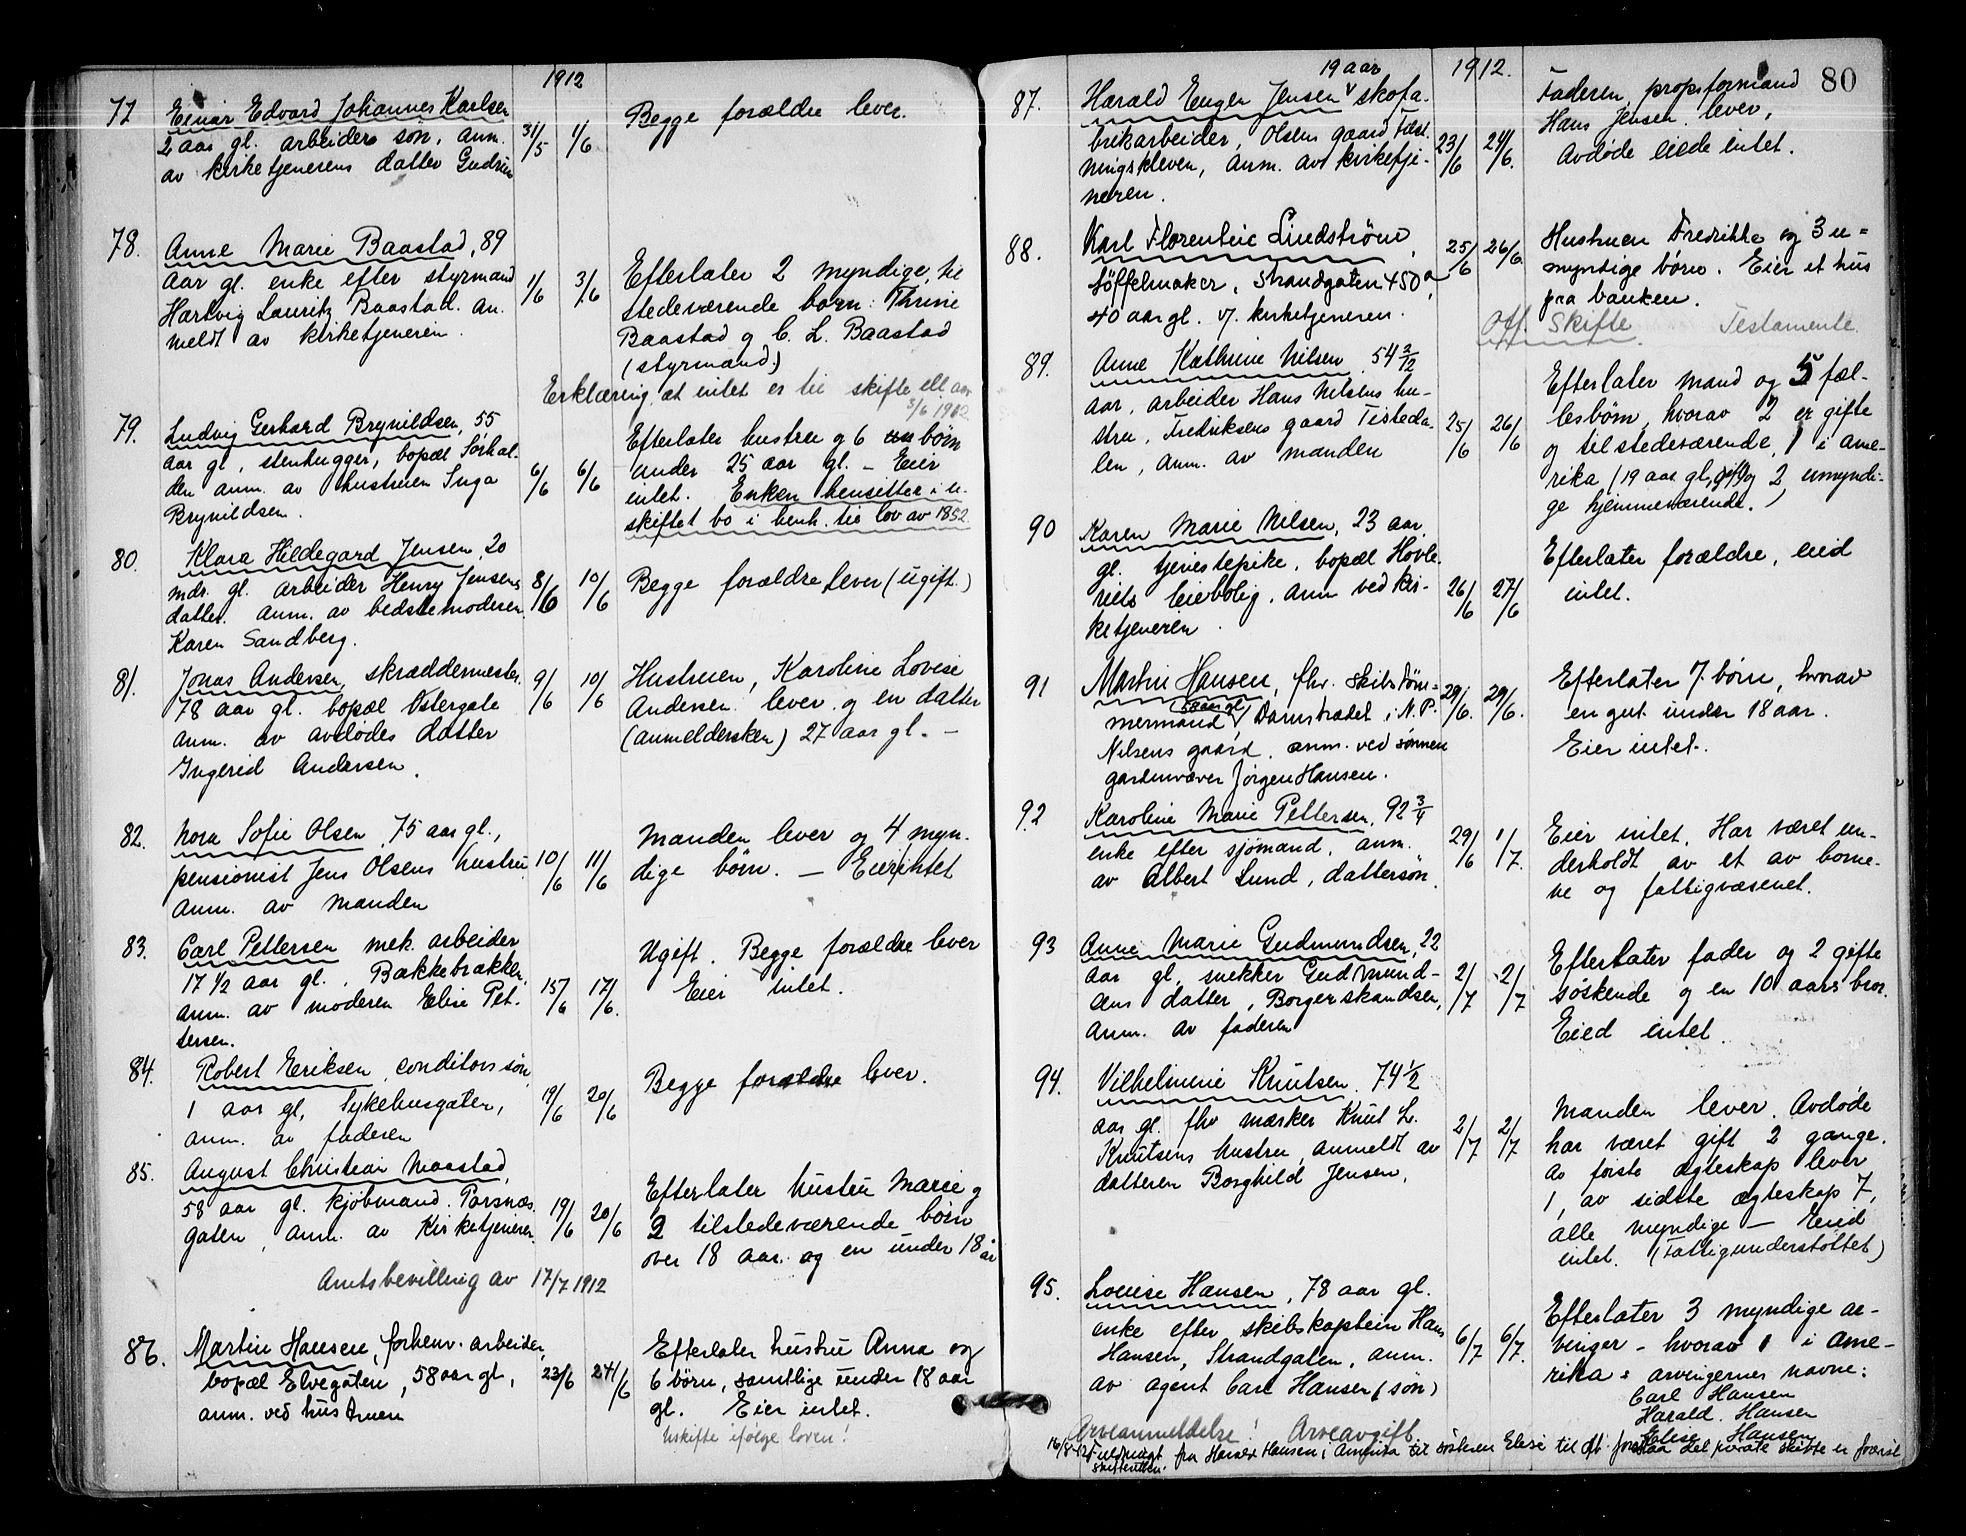 1912
77
Einar Edvard Johannes Karlsen
2 aar gl. arbeiders søn, anm.
av kirketjenerens datter Gudrun
31/5
1/6
Begge forældre lever.
78.
Anne Marie Baastad, 89
aar gl. enke efter styrmand
Hartvig Lauritz Baastad. an.
meldt av kirketjeneren.
1/6
3/6
Efterlater 2 myndige, til
stedeværende børn: Thrine
Baastad og C. L. Baastad
(styrmand)
Erklæring at intet er til skifte ell. arv
3/6 1912
79.
Ludvig Gerhard Brynildsen, 55
aar gl, stenhugger, bopæl Sørhal.
den anm. av hustruen Inga
Brynildsen.
6/6
6/6
Efterlater hustru og 6 børn
under 25 aar gl. – Eier
intet. Enken hensitter i u.
skiftet bo i henh. til lov av 1852.
80.
Klara Hildegard Jensen, 20
mdr. gl. arbeider Henry Jensens
datter. anm. av bedstemoderen
Karen Sandberg.
8/6
10/6
Begge forældre lever (ugift.)
81.
Jonas Andersen, skræddermester.
78 aar gl. bopæl Østergate
anm. av avdødes datter
Ingerid Andersen.
9/6
10/6
Hustruen, Karoline Lovise
Andersen lever og en datter
(anmeldersken) 27 aar gl. –
82.
Nora Sofie Olsen, 75 aar gl.,
pensionist Jens Olsens hustru
anm. av manden
10/6
11/6
Manden lever og 4 myn.
dige børn. – Eier intet
83.
Carl Pettersen mek. arbeider
17 1/2 aar gl., Bækkebrækken,
anm. av moderen Elise Pet.
tersen.
15/6
17/6.
Ugift. Begge forældre lever
Eier intet.
84.
Robert Eriksen, conditors søn,
1 aar gl, Sykehusgaten,
anm. av faderen
19/6
20/6
Begge forældre lever.
85.
August Christian Maastad,
58 aar gl. kjøbmand. Porsnæs
gaten, anm. av Kirketjeneren.
19/6
20/6
Efterlater hustru Marie og
2 tilstedeværende børn
over 18 aar. og en under 18 år
Amtsbevilling av 17/7 1912
86.
Martin Hansen, forhenv. arbeider,
bopæl Elvegaten, 58 aar gl,
anm. ved hustruen
23/6
24/6
Efterlater hustru Anna og
6 børn, samtlige under 18 aar
gl. Eier intet.
Uskifte ifølge loven!
80
1912.
87.
19 aar
Harald Eugen Jensen skofa.
brikarbeider, Olsens gaard Fæst.
ningskleven, anm. av kirketje-
neren.
23/6
24/6.
Faderen, propsformand
Hans Jensen lever,
Avdøde eiede intet.
88.
Karl Florentin Lindstrøm,
Søffelmaker, Strandgaten 450 a,
40 aar gl. v/ kirketjeneren.
25/6
26/6.
Hustruen Fredrikke og 3 u=
myndige børn. Eier et hus
paa banken.
Off. Skifte. Testamente.
89.
Anne Kathrine Nilsen, 54 2/12
aar, arbeider Hans Nilsens hu-
stru, Fredriksens gaard Tisteda-
len, anm. av manden
25/6
26/6
Efterlater mand og 5 fæl-
lesbørn, hvorav 2 er gifte
og tilstedeværende, 1 i ame-
rika (19 aar gl, gift) og 2, umyndi-
ge hjemmeværende.
90
Karen Marie Nilsen, 23 aar
gl. tjenestepike, bopæl Høvle.
riets leiebolig, anm ved kir-
ketjeneren.
26/6
27/6
Efterlater forældre, eied
intet.
91
Martin Hansen, fhv. skibstøm=
mermand, Damstrædet i N. P.
Nilsens gaard, anm. ved sønnen
garnvæver Jørgen Hansen.
29/6.
29/6.
Efterlater 7 børn, hvorav
en gut under 18 aar.
Eier intet.
92
Karoline Marie Pettersen, 92 3/4
enke efter sjømand, anm.
av Albert Lund, dattersøn.
29/6
1/7.
Eier intet. Har været un-
derholdt av et av børne-
ne og fattigvæsenet.
93
Anne Marie Gudmundsen, 22
aar gl, snekker Gudmund-
sens datter, Borgerskandsen,
anm. av faderen
2/7
2/7
Efterlater fader og 2 gifte
søskende og en 10 aars bror.
Eied intet.
94.
Vilhelmine Knutsen, 74 1/2
aar gl. fhv mærker Knut L.
Knutsens hustru, anmeldt av
datteren Borghild Jensen,
2/7
2/7
Manden lever. Avdøde
har været gift 2 gange.
Av første ægteskap lever
1, av sidste ægteskap 7,
alle myndige – Eied
intet. (Fattigunderstøttet)
95.
Louise Hansen, 78 aar gl.
enke efter skibskaptein Hans
Hansen, Strandgaten, anm.
av agent Carl Hansen (søn)
6/7
6/7.
Efterlater 3 myndige ar-
vinger – hvorav 1 i ame-
rika: arvingernes navne:
Carl Hansen
Harald. Hansen
Elise Hansen
Arveanmeldelse! Arveavgift
16/8-12 Fuldmagt fra Harald Hansen i Amerika til søsteren Elise til at forestaa det private skifte er forevist
skifteretten.